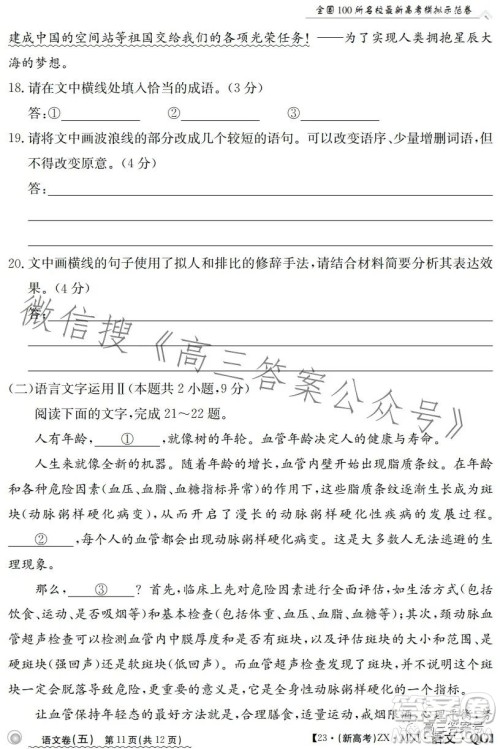 全国100所名校最新高考模拟示范卷
建成中国的空间站等祖国交给我们的各项光荣任务!——为了实现人类拥抱星辰大
海的梦想。
18.请在文中横线处填入恰当的成语。(3分)
答:① ② ③
19.请将文中画波浪线的部分改成几个较短的语句。可以改变语序、少量增删词语,但
不得改变原意。(4分)
答:
20.文中画横线的句子使用了拟人和排比的修辞手法,请结合材料简要分析其表达效
果。(4分)
答:
微信搜《高三答案公众号》
(二)语言文字运用Ⅱ(本题共2小题,9分)
阅读下面的文字,完成21~22题。
人有年龄, ① ,就像树的年轮。血管年龄决定人的健康与寿命。
人生来就像全新的机器。随着年龄的增长,血管内壁开始出现脂质条纹。在年龄
和各种危险因素(血压、血脂、血糖指标异常)的作用下,这些脂质条纹逐渐生长成为斑
块(动脉粥样硬化病变),从而开启了漫长的动脉粥样硬化性疾病的发展过程。
② ,每个人的血管都会出现动脉粥样硬化病变。这是大多数人无法逃避的生
理现象。
那么, ③ ?首先,临床上先对危险因素进行全面评估,如生活方式(包括
饮食、运动、是否吸烟等)和基本检查(包括体重、血压、血脂、血糖等);其次,颈动脉血
管超声检查可以检测血管内中膜厚度和是否有斑块,以及评估斑块的大小和范围、是
硬斑块(强回声)还是软斑块(低回声)。而血管超声检查发现斑块,并不说明这个斑
块一定会脱落导致危险,更重要的意义是,它是全身性动脉粥样硬化斑块的表现。
让血管保持年轻态的最好方法就是,合理膳食,适量运动,戒烟限酒,心理平衡
语文卷(五) 第11页(共12页) 【23·(新高考)ZX·MNJ·语文